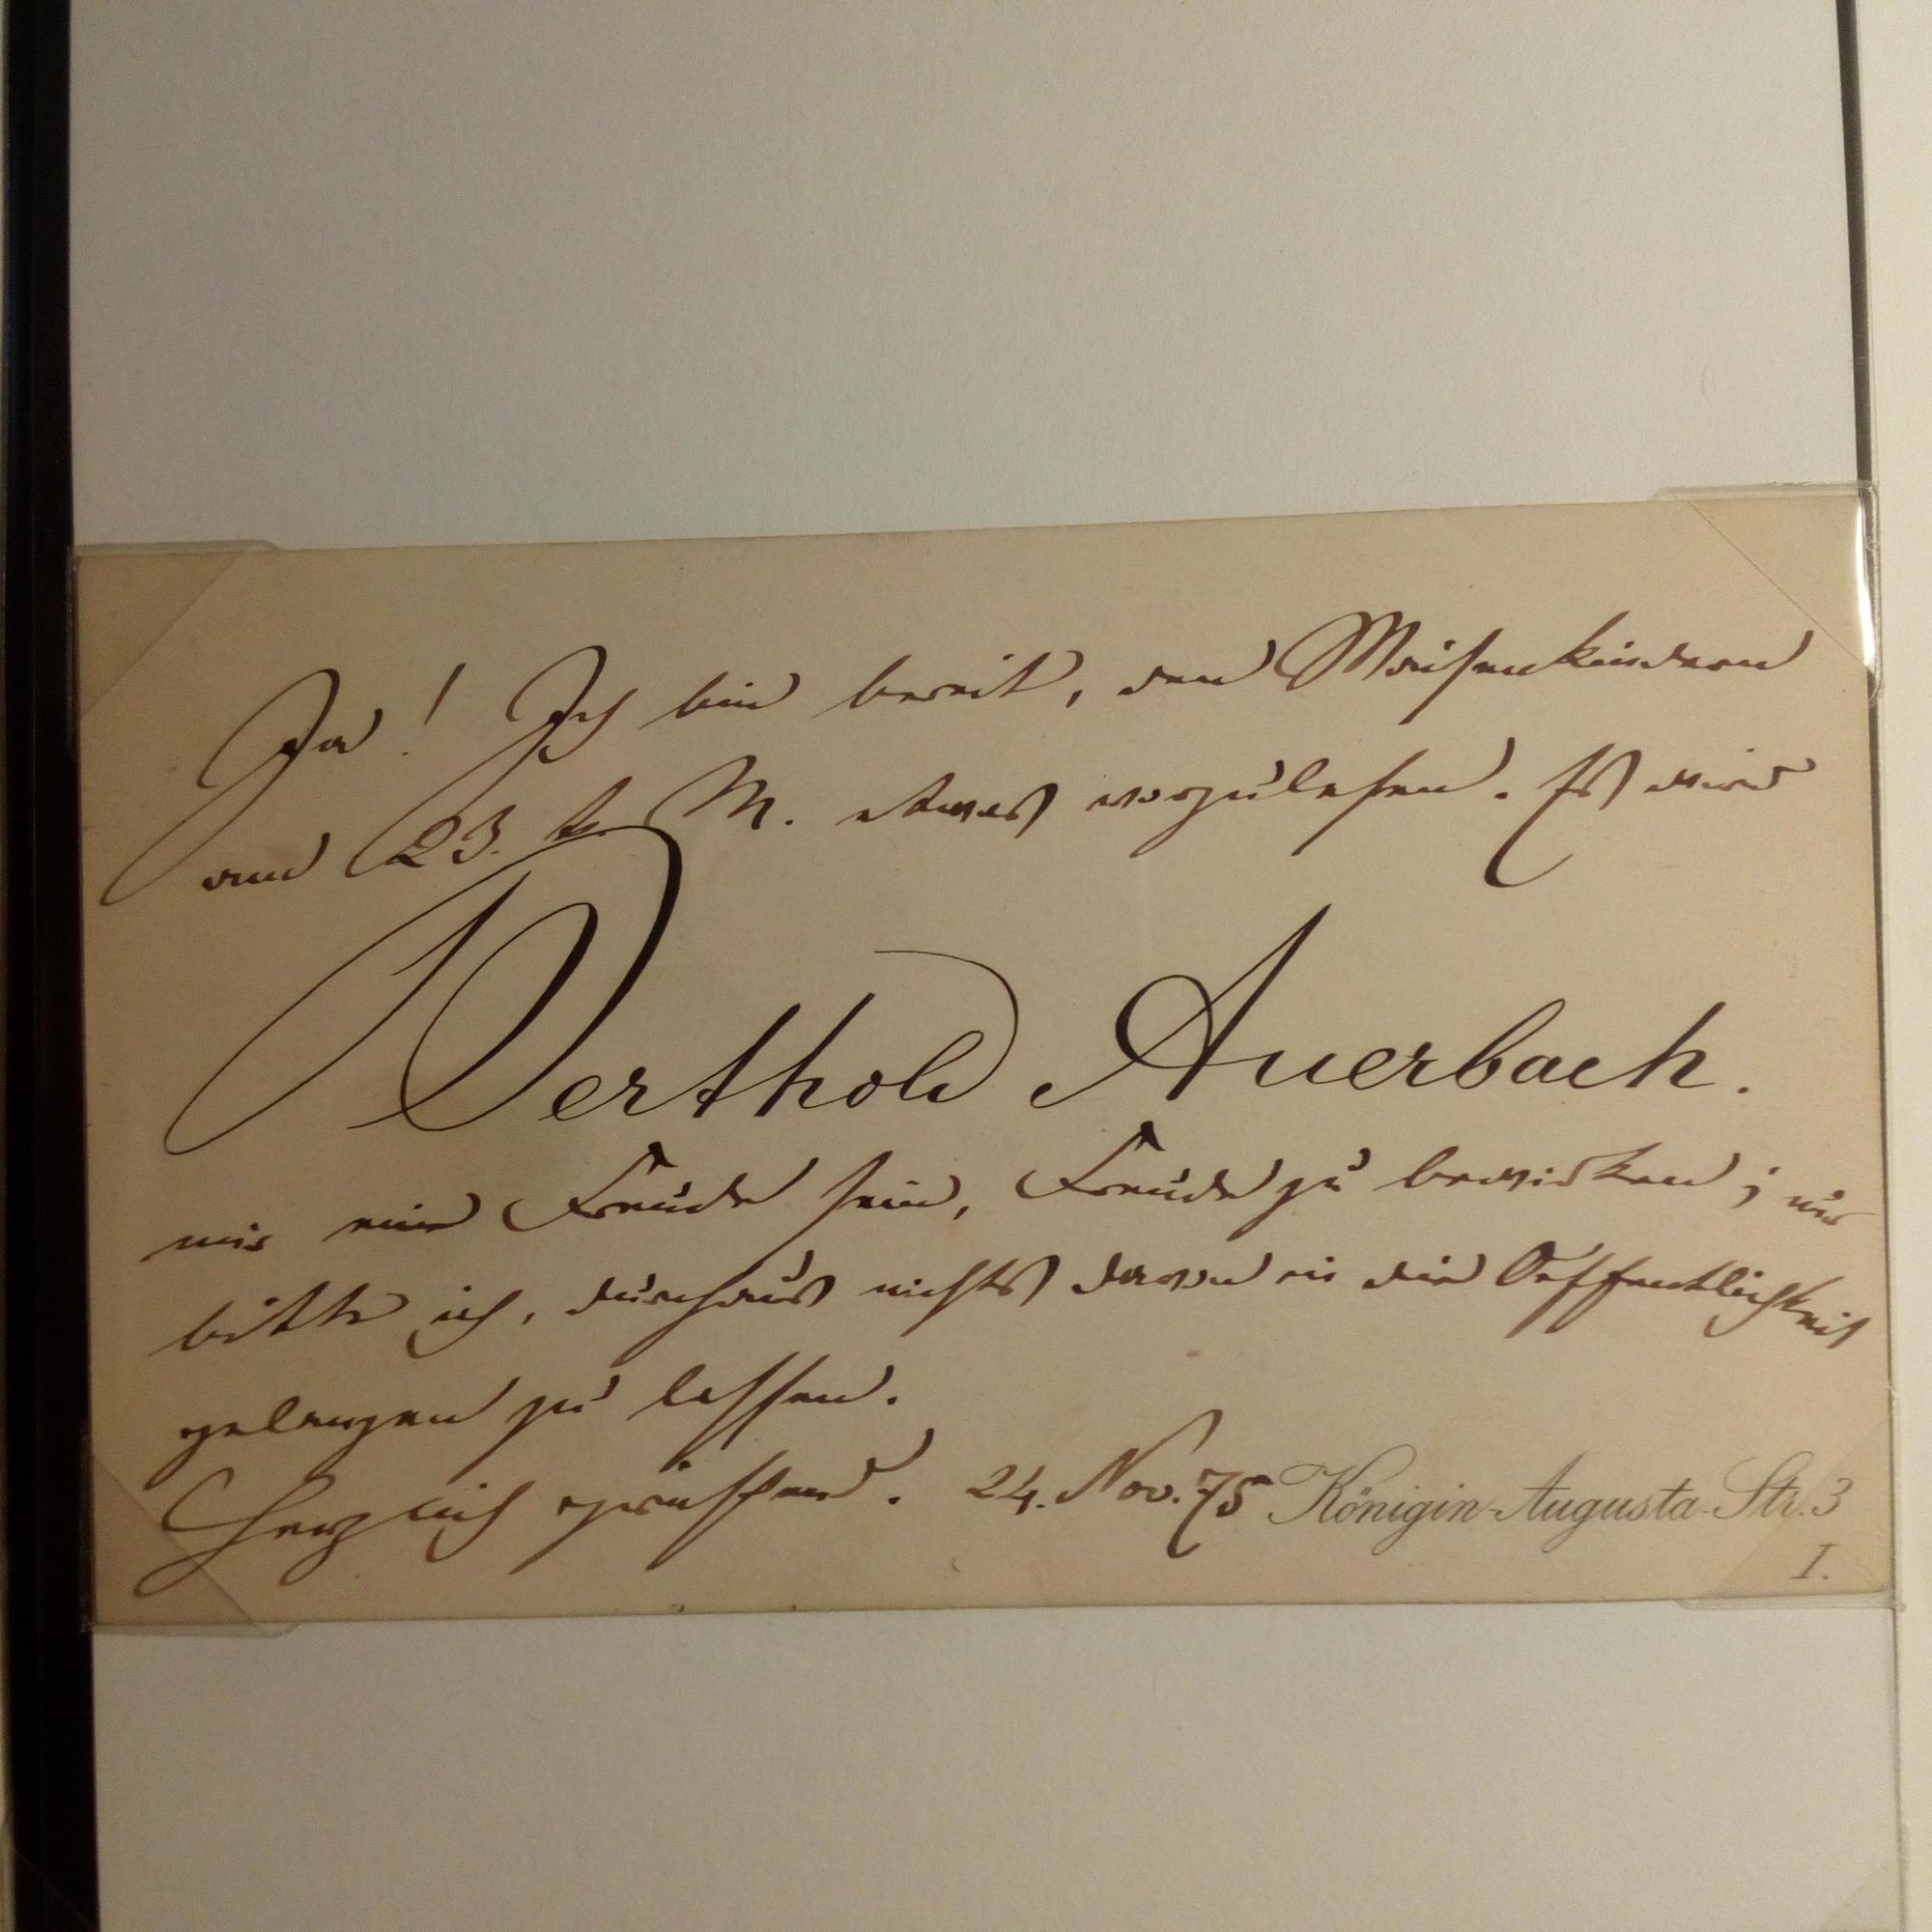 Ja! Ich bin bereit, den Waisenkindern
am 23. d. M. etwas vorzulesen. Es wird
Berthold Auerbach.
mir eine Freude sein, Freude zu bewirken; nur
bitte ich, durchaus nichts davon in die Oeffentlichkeit
gelangen zu lassen.
Herzlich grüssend. 24. Nov. 75 Königin-Augusta-Str. 3
I.